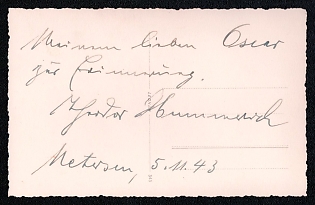 Meinem lieben Oscar
zur Erinnerung.
Theodor Hummerich
Uetersen, 5.11.43